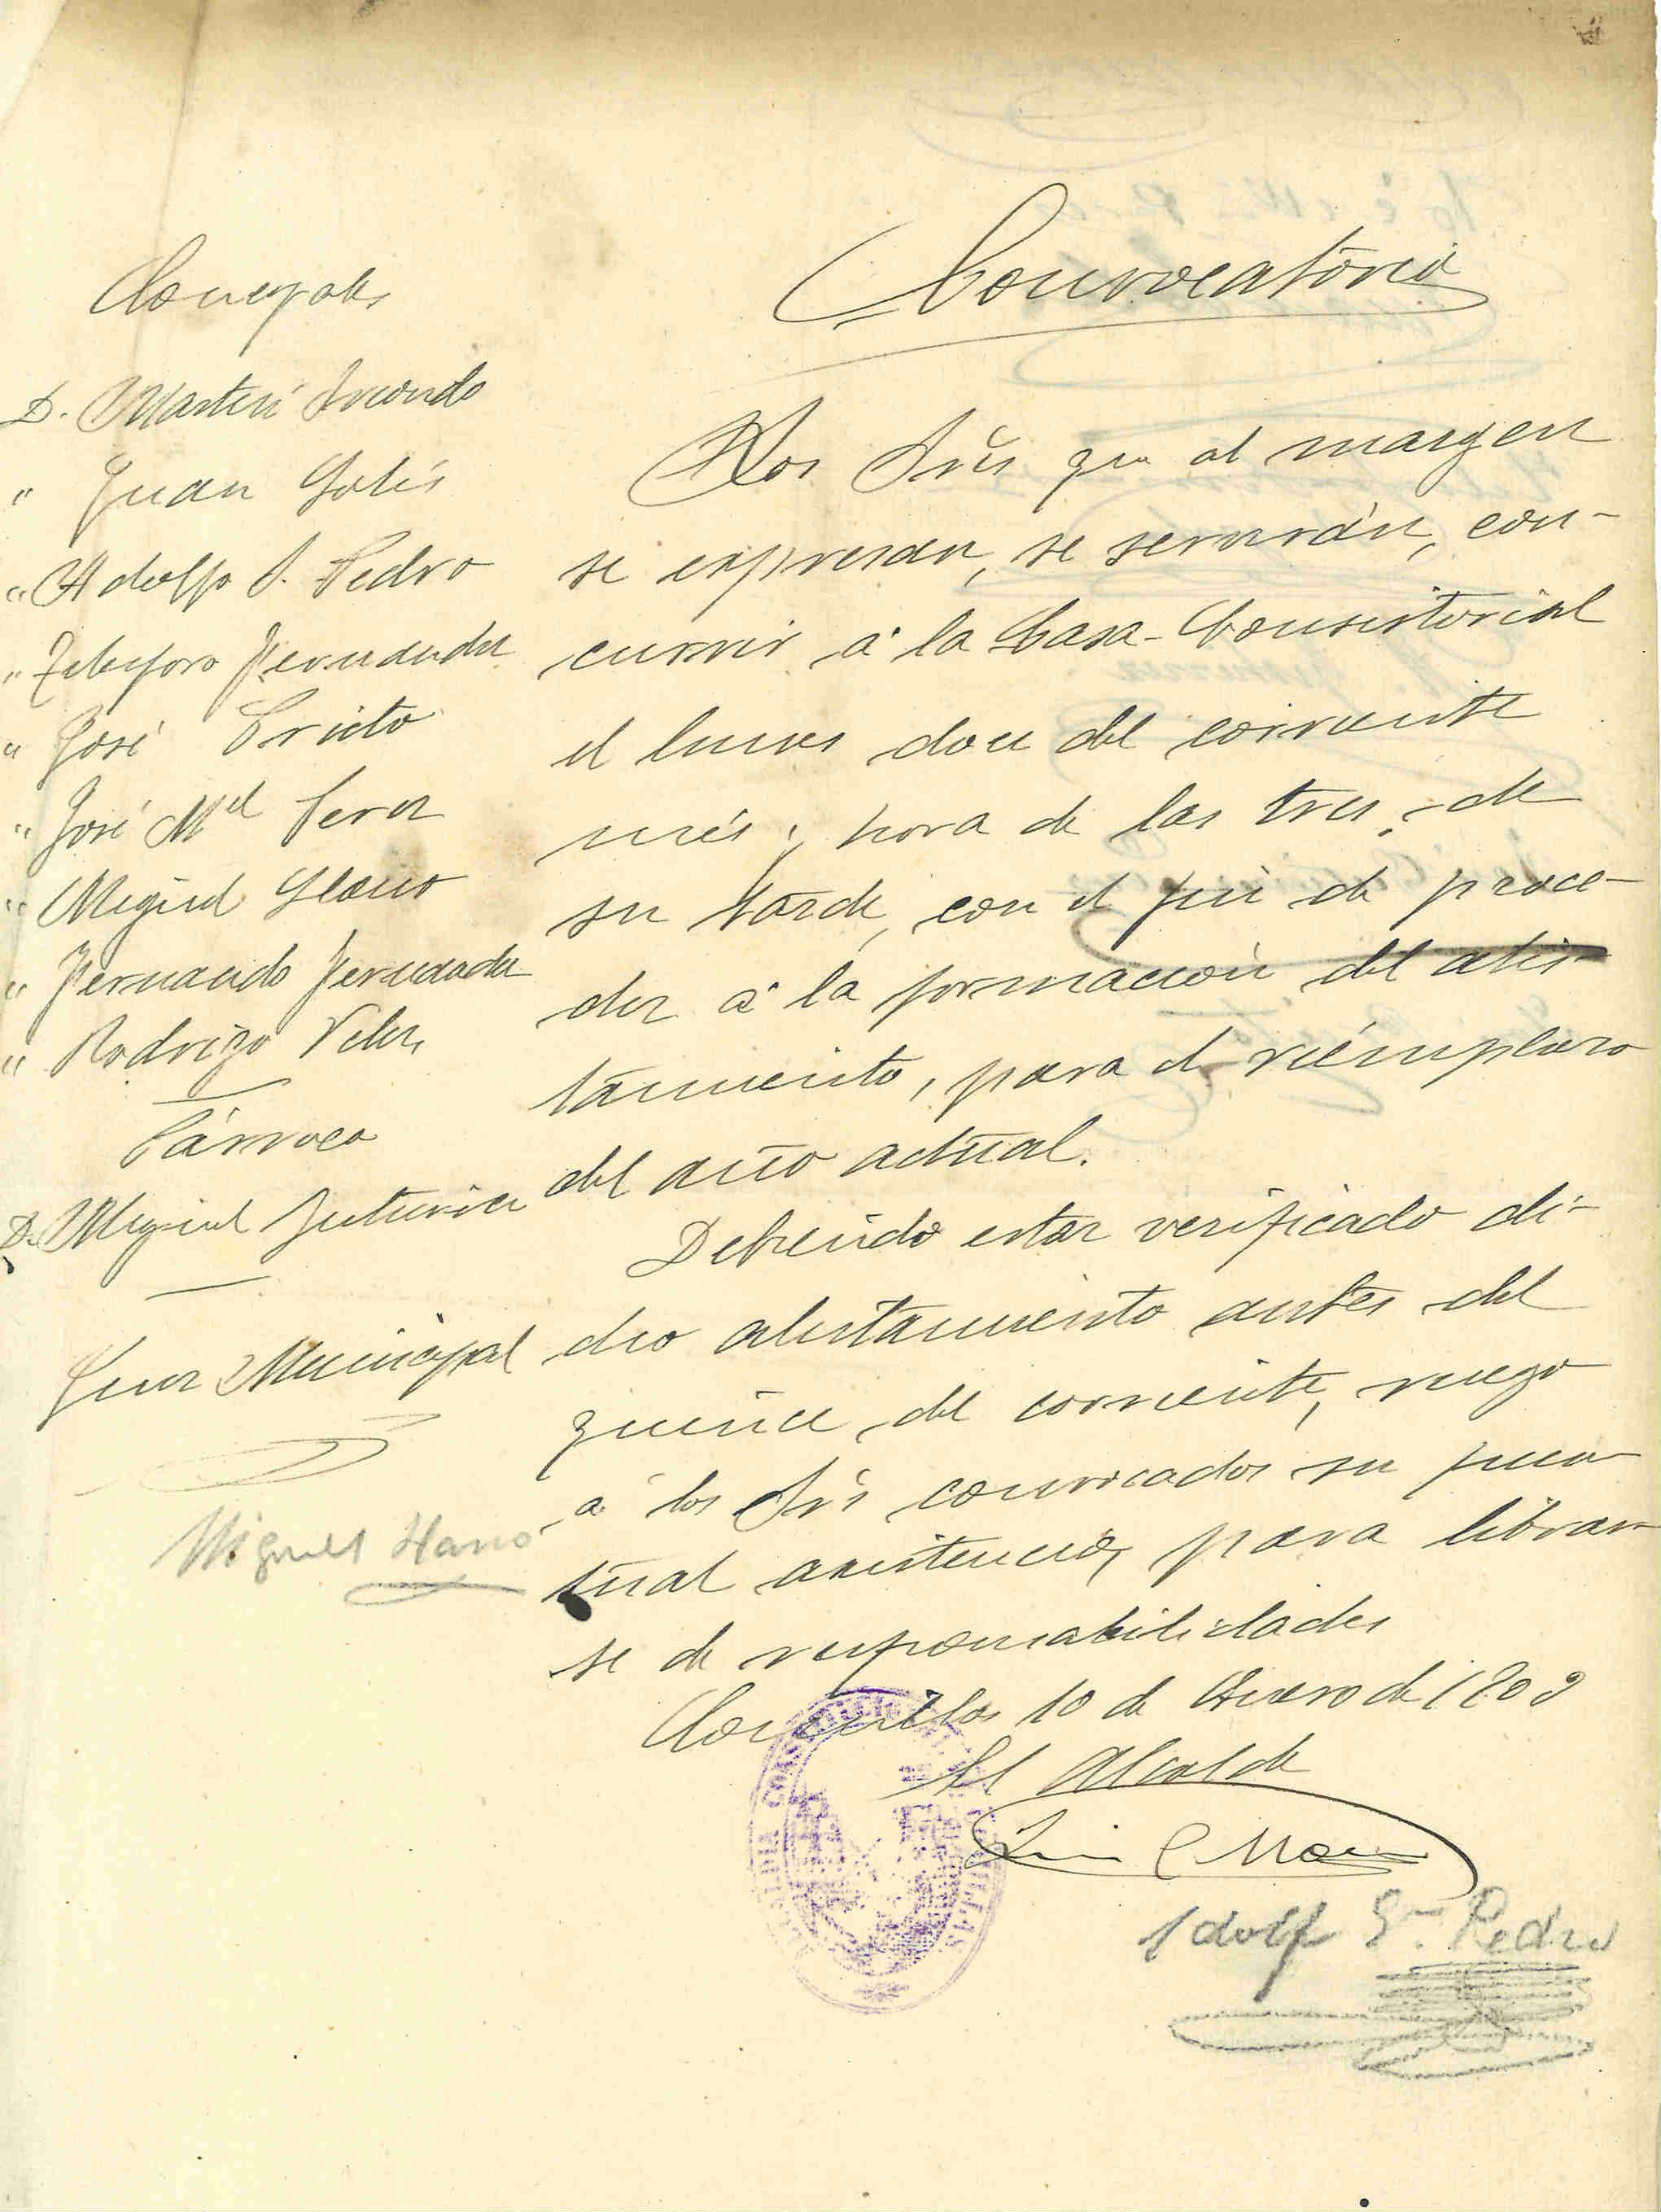 Convocatoria
Concejales
D. Martin
" Juan Solis
" Adolfo S. Pedro
" Telesforo Fernandez
" José Prieto
" José Mª Perez
" Miguel Llano
" Fernando Fernandez
" Rodrigo Velez
Párroco
D. Miguel Gutierrez
Juez Municipal
Miguel Llano
Los Srẽs que al margen
se expresan, se servirán, con-
currir á la Casa-Consistorial
el lunes doce del corriente
més, hora de las tres, de
su tarde, con el fin de proce-
der á la formación del alis-
tamiento, para el réemplazo
del año actual.
Debiendo estar verificado di-
cho alistamiento antes del
quince, del corriente, ruego
á los Srẽs convocados su pun-
tual asistencia, para librar-
se de responsabilidades
10 de Enero de
El Alcalde
Adolfo Sn. Pedro